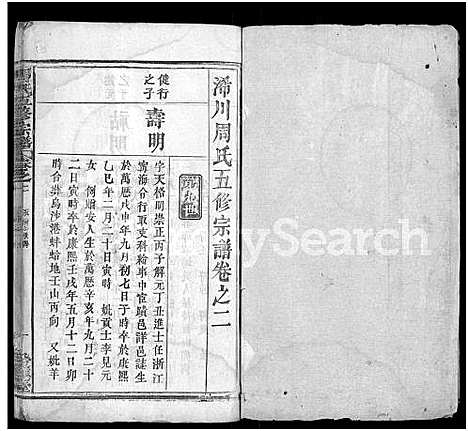 浠川周氏五修宗譜卷之二
第九世
健行
之子
壽明
字天格明崇正丙子解元丁丑進士任浙江
寧海令行取支科給事中宦蹟邑詳邑誌生
於萬歷戊申年九月初七日子時卒於康熙
乙巳年二月二十日寅時　妣貢士李見元
女　例贈安人生於萬歷辛亥年九月二十
二日寅時卒於康熙壬戌年五月十二日卯
時合葬烏沙港蚌蛤地壬山丙向　又妣羊